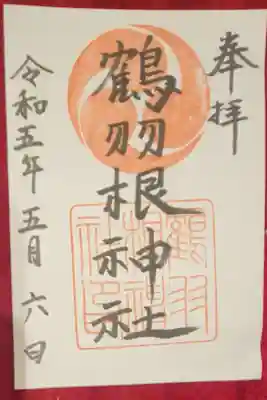 奉拝
鶴羽根神社
令和五年五月六日